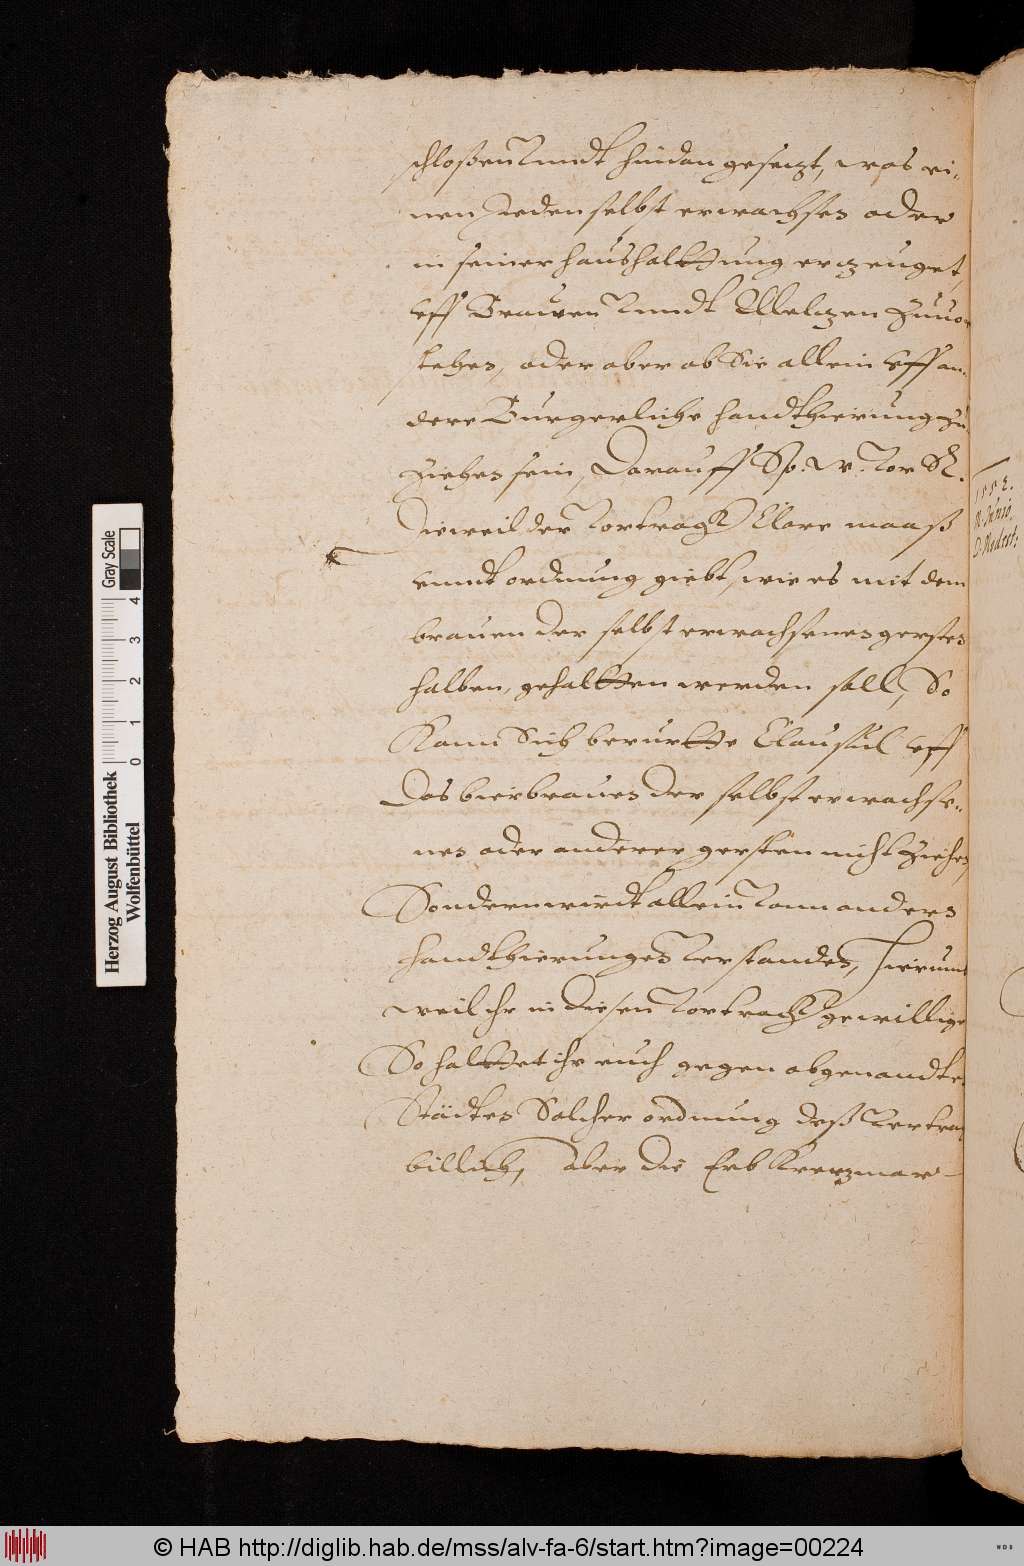 schloßen Vnndt hindan gesetzt, was ei-
nen Jeden selbst erwachsen oder
in seiner haushalttung erzeuget,
Vff Brauen Vnndt Meltzen Zuuor
stehen, oder aber ob Sie allein Vff an-
dere Burgerliche handthierung Zu
Ziehen sein, Darauff Sp. W. Vor R.
Dieweil der Vortragk Clare maaß
vnndt ordnung giebt, wie es mit dem
brauen der selbst erwachsenen gersten
halben, gehaltten werden soll, So
Kann Sich berurtte Clausul Vff
Das bierbrauen der selbst erwachse-
nen oder anderer gersten nicht Ziehen,
Sondern wirdt allein Vonn andern
handthierungen Verstanden, Hierumb
weil ihr in diesen Vortrach gewilliget
So halttet ihr euch gegen obgenandten
Städten Solcher ordnung deß Vertrags
billich, Aber die Erb Kretzmar-
1552.
Herzog August Bibliothek
Wolfenbüttel
Gray Scale
0 1 2 3 4
© HAB http://diglib.hab.de/mss/alv-fa-6/start.htm?image=00224
WDB